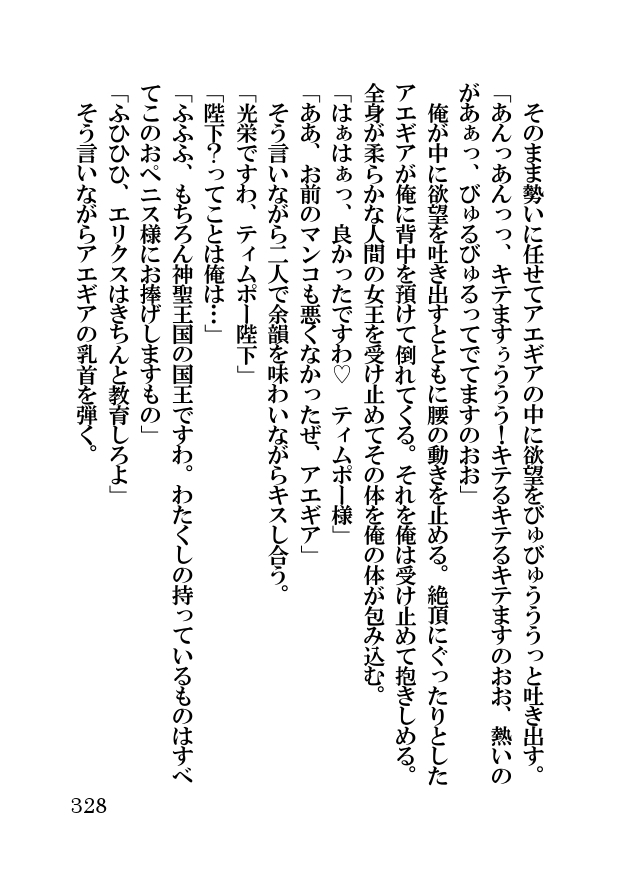 そのまま勢いに任せてアエギアの中に欲望をびゅびゅうううっと吐き出す。
「あんっあんっっ、キテますぅううう！キテるキテるキテますのおお、熱いの
があぁっ、びゅるびゅるってでてますのおお」
俺が中に欲望を吐き出すとともに腰の動きを止める。絶頂にぐったりとした
アエギアが俺に背中を預けて倒れてくる。それを俺は受け止めて抱きしめる。
全身が柔らかな人間の女王を受け止めてその体を俺の体が包み込む。
「はぁはぁっ、良かったですわ♡　ティムポー様」
「ああ、お前のマンコも悪くなかったぜ、アエギア」
そう言いながら二人で余韻を味わいながらキスし合う。
「光栄ですわ、ティムポー陛下」
「陛下？ってことは俺は…」
「ふふふ、もちろん神聖王国の国王ですわ。わたくしの持っているものはすべ
てこのおペニス様にお捧げしますもの」
「ふひひひ、エリクスはきちんと教育しろよ」
そう言いながらアエギアの乳首を弾く。
328